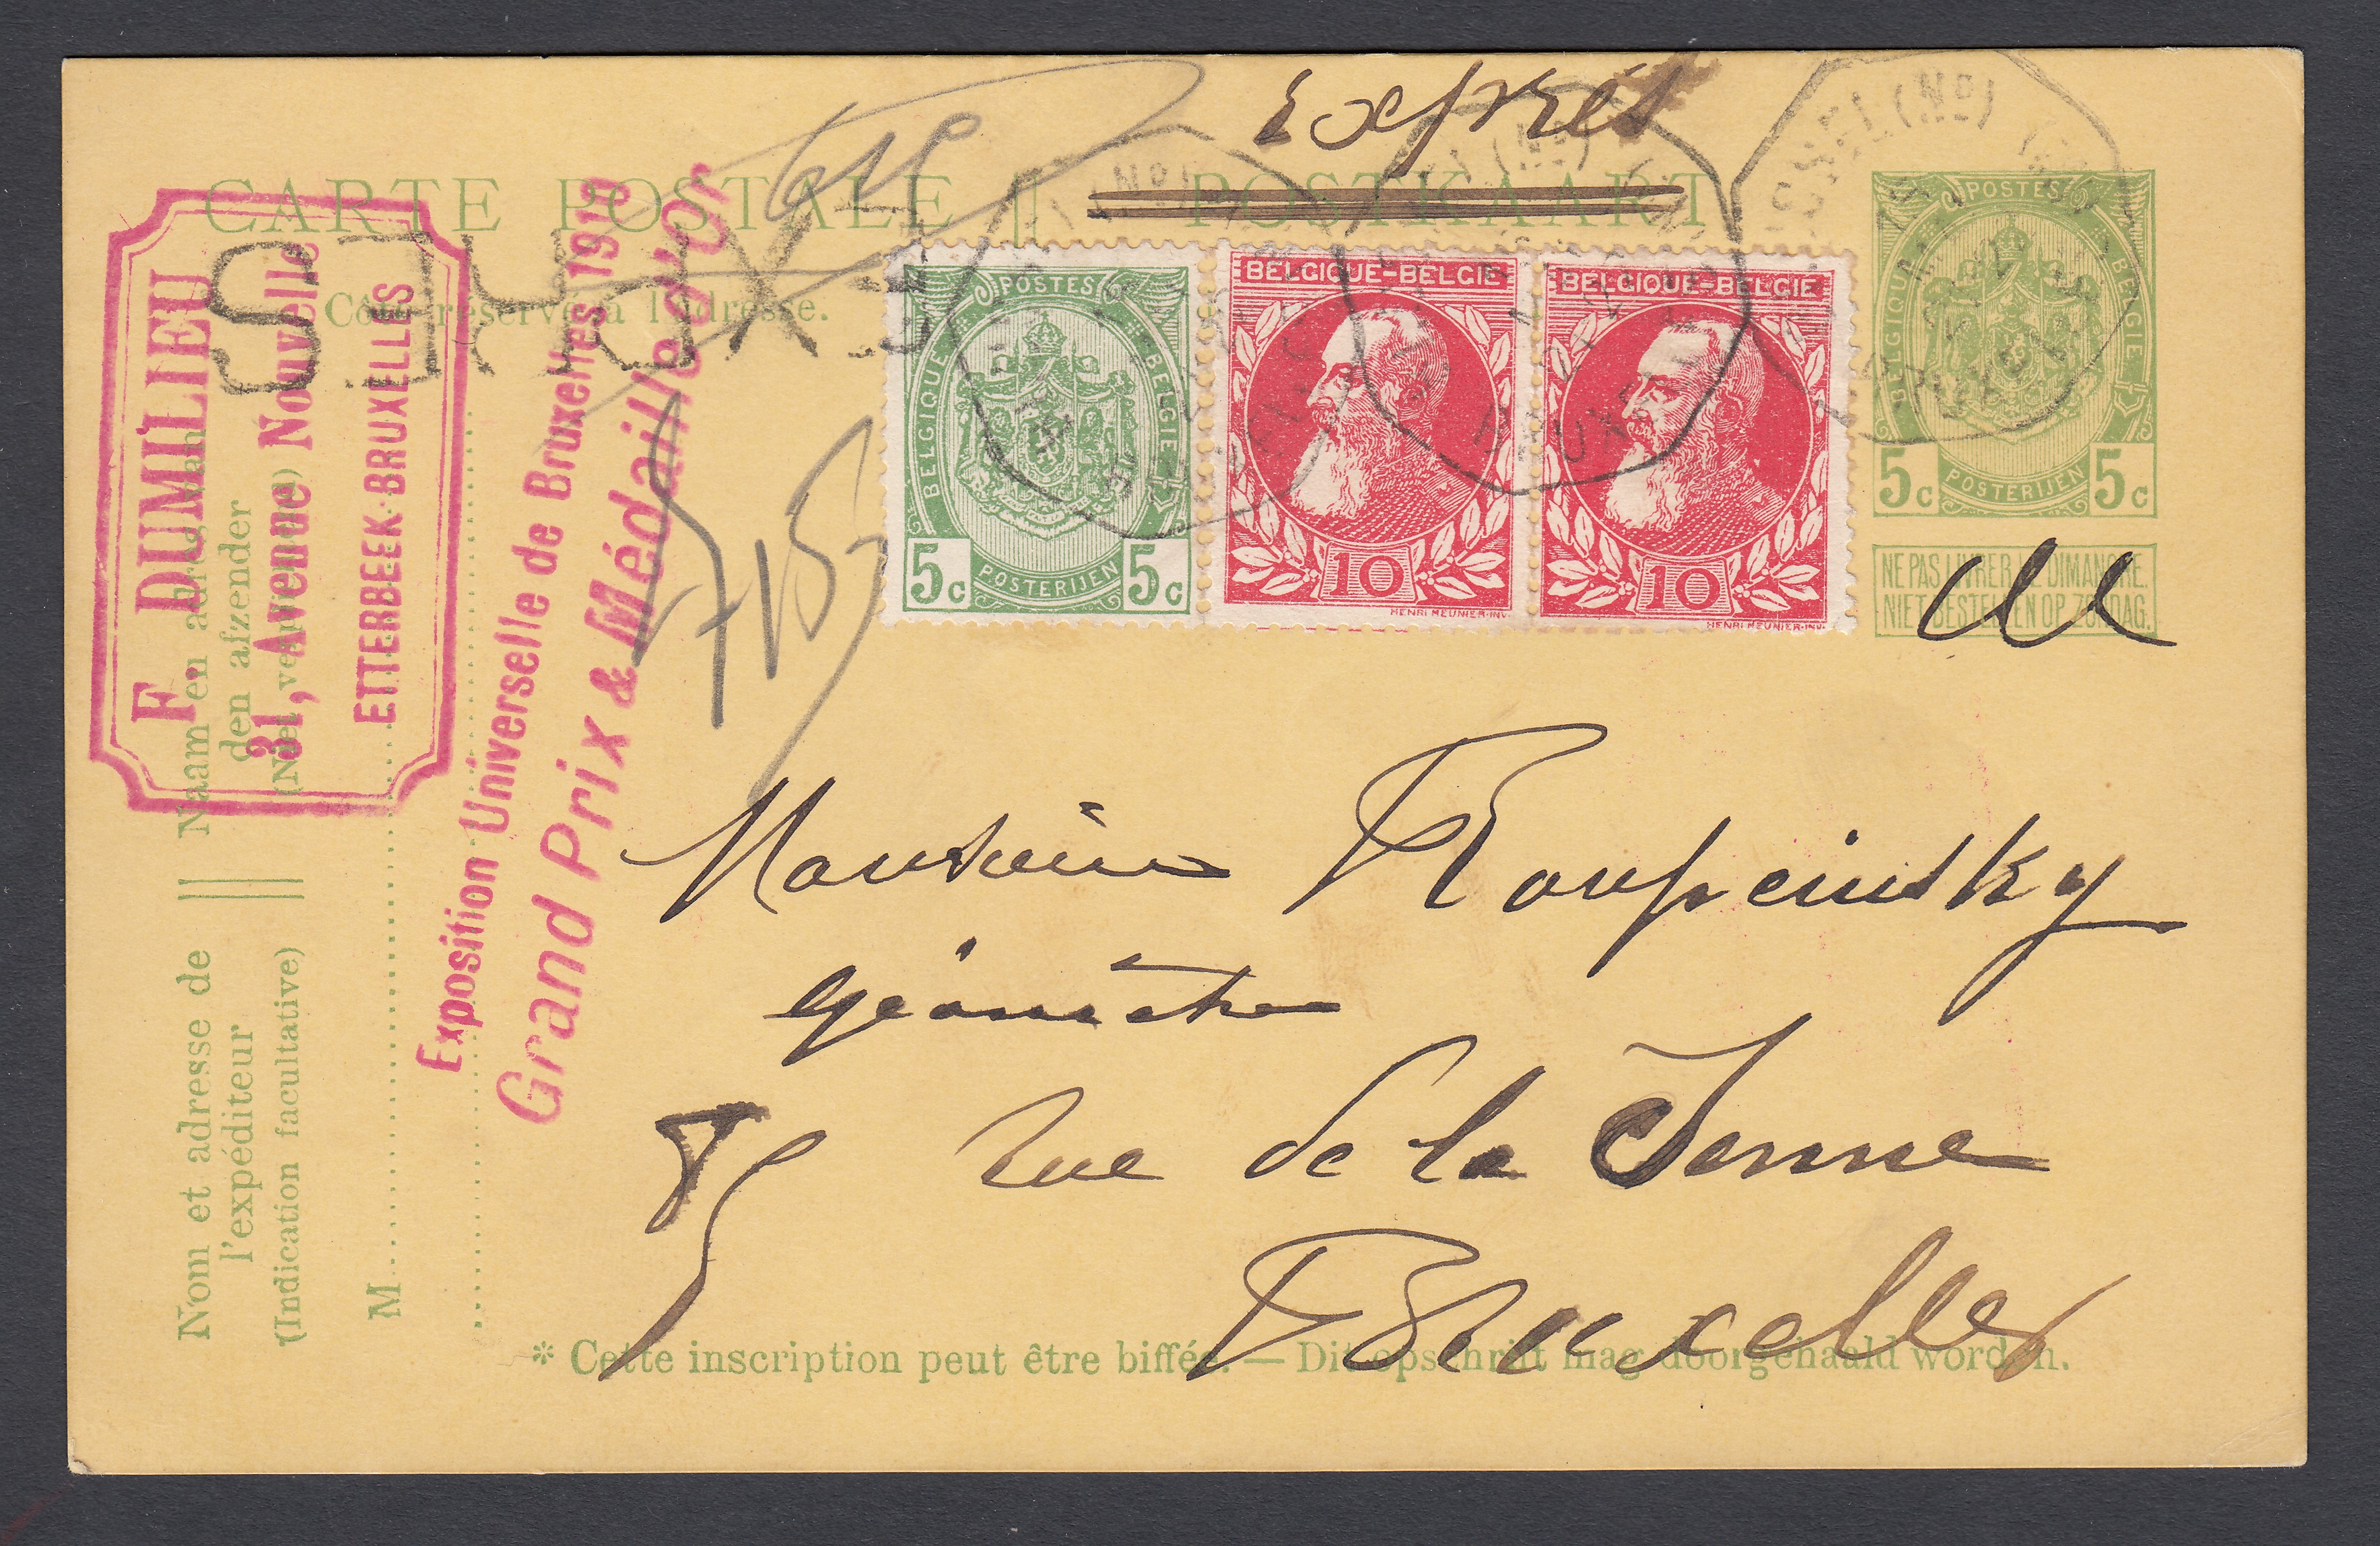 Exprès
CARTE POSTALE || POSTKAART
Côté réservé à l'adresse.
F. DUMILIEU
31, Avenue Nouvelle
ETTERBEEK-BRUXELLES
Exposition Universelle de Bruxelles 1910
Grand Prix & Médaille d'Or
Nom et adresse de || Naam en adres van
l'expéditeur den afzender
(Indication facultative) || (Niet verplichtend)
M
POSTES
BELGIQUE BELGIË
5c POSTERIJEN 5c
BELGIQUE-BELGIE
10
HENRI MEUNIER-INV.
BELGIQUE-BELGIE
10
HENRI MEUNIER-INV.
POSTES
BELGIQUE BELGIË
5c POSTERIJEN 5c
NE PAS LIVRER LE DIMANCHE.
NIET BESTELLEN OP ZONDAG.
Monsieur Roupcinsky
géomètre
85 rue de la Senne
Bruxelles
* Cette inscription peut être biffée. — Dit opschrift mag doorgehaald worden.